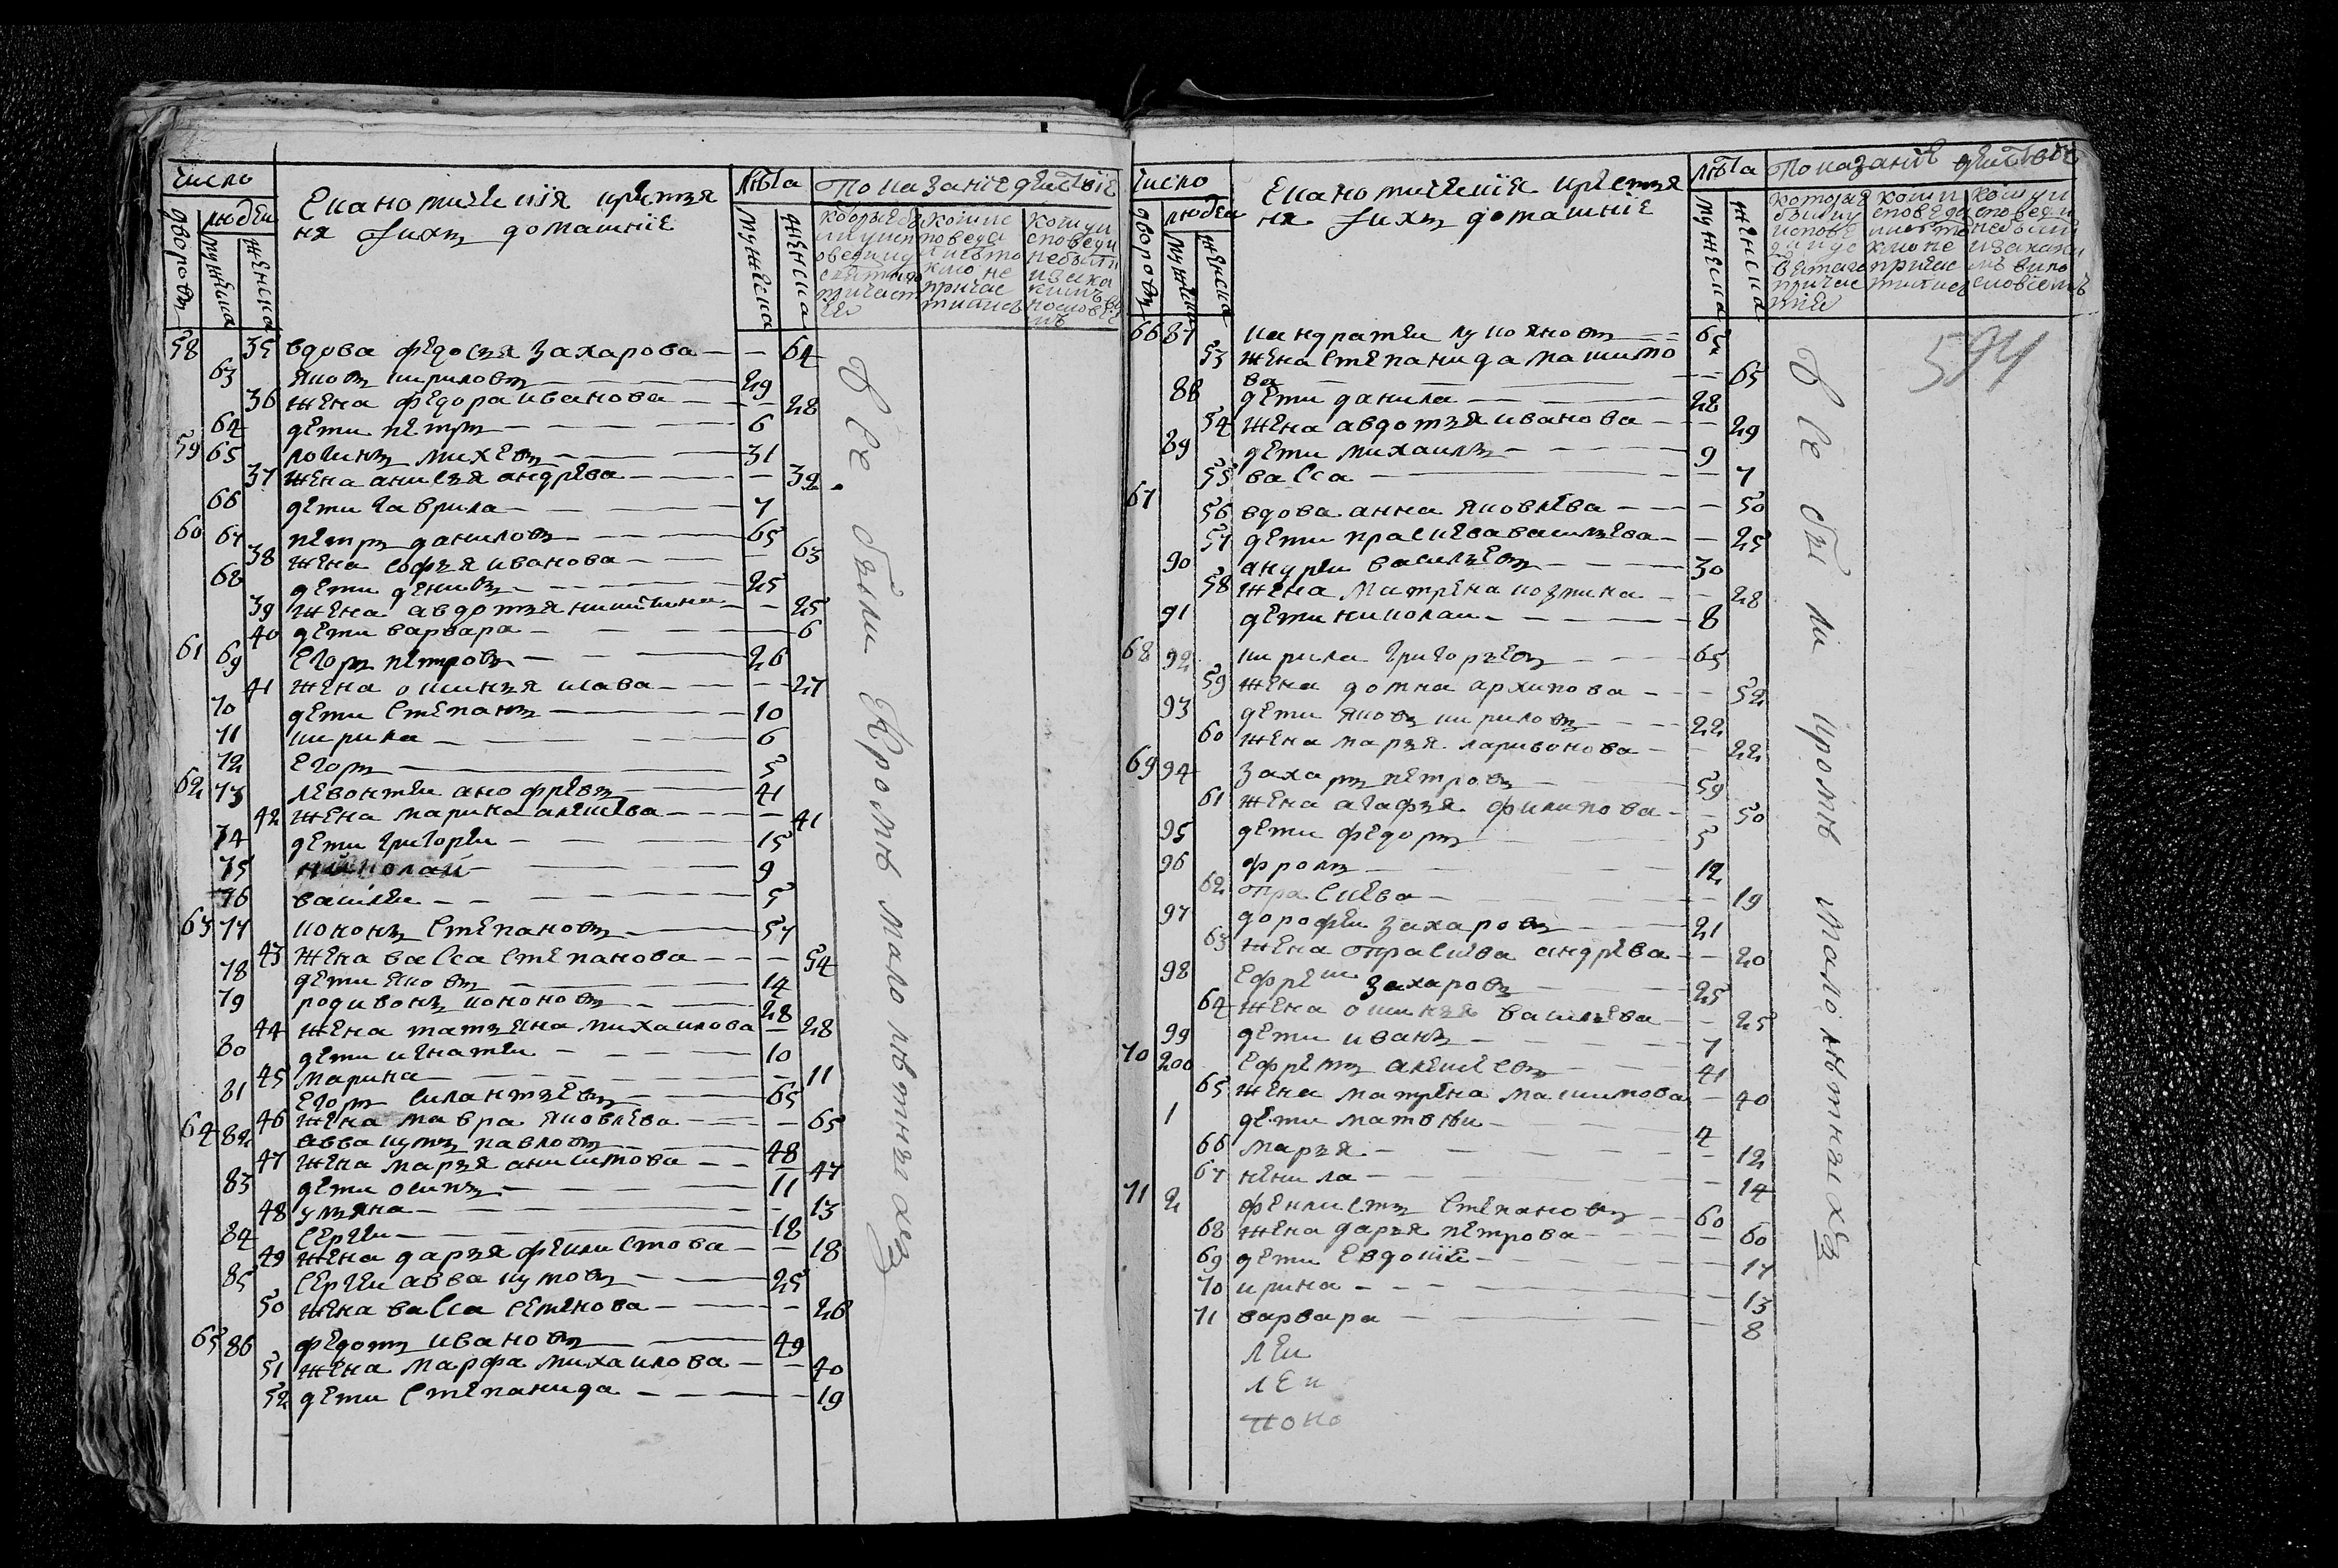 число
Економическия крестья
не ихъ домашние
лѣта
Показание действие
дворовъ
людеи
мужеска
женска
мужеска
женска
58 35 вдова федосья захарова — — 64
63 яковъ кириловъ — 29
36 жена федора иванова — — 28
64 дети петръ — 6
59 65 логинъ михевъ — 31
37 жена анисья андрева — — 32
66 дети гаврила — 7
60 67 петръ даниловъ — 65
38 жена софья иванова — — 63
68 дети денисъ — 25
39 жена авдотья никитина — — 25
40 дети варвара — — 6
61 69 егоръ петровъ — 26
41 жена оксинья исава — — 27
70 дети степанъ — 10
71 кирила — 6
72 егоръ — 5
62 73 левонтеи анофревъ — 41
42 жена марина алексева — — 41
74 дети григореи — 15
75 николаи — 9
76 василеи — 5
63 77 кононъ степановъ — 57
43 жена васса степанова — — 54
78 дети яковъ — 14
79 родивонъ кононовъ — 28
44 жена татьяна михаилова — 28
80 дети игнатеи — 10
45 марина — — 11
81 егоръ силантьевъ — 65
46 жена мавра яковлева — — 65
64 82 аввакумъ павловъ — 48
47 жена марья анисимова — — 47
83 дети осипъ — 11
48 ульяна — — 13
84 сергеи — 18
49 жена дарья феклистова — — 18
85 сергеи аввакумовъ — 25
50 жена васса семенова — — 26
65 86 федотъ ивановъ — 49
51 жена марфа михаилова — — 40
52 дети степанида — — 19
все были кромѣ малолѣтныхъ
число
Економическия крестья
не ихъ домашние
лѣта
Показание действие
дворовъ
людеи
мужеска
женска
мужеска
женска
594
66 87 кандратеи лукояновъ — 65
53 жена степанида максимо
ва — — 65
88 дети данила — 28
54 жена авдотья иванова — — 29
89 дети михаилъ — 9
55 васса — — 7
67 56 вдова анна яковлева — — 50
57 дети прасковья васильева — — 25
90 андреи васильевъ — 30
58 жена матрена козмина — — 28
91 дети николаи — 8
68 92 кирила григорьевъ — 65
59 жена домна архипова — — 52
93 дети яковъ кириловъ — 22
60 жена марья ларивонова — — 22
69 94 захаръ петровъ — 59
61 жена агафья филипова — — 50
95 дети федоръ — 5
96 фролъ — 12
62 опраксева — — 19
97 дорофеи захаровъ — 21
63 жена опраксева андрева — — 20
98 ефреи захаровъ — 25
64 жена оксинья васильева — — 25
99 дети иванъ — 7
70 200 ефремъ алексеевъ — 41
65 жена матрена максимова — 40
1 дети матвѣи — 4
66 марья — — 12
67 ненила — — 14
71 2 феклистъ степановъ — 60
68 жена дарья петрова — — 60
69 дети евдокие — — 17
70 ирина — — 13
71 варвара — — 8
леи
леи
коно
все были кромѣ малолѣтныхъ